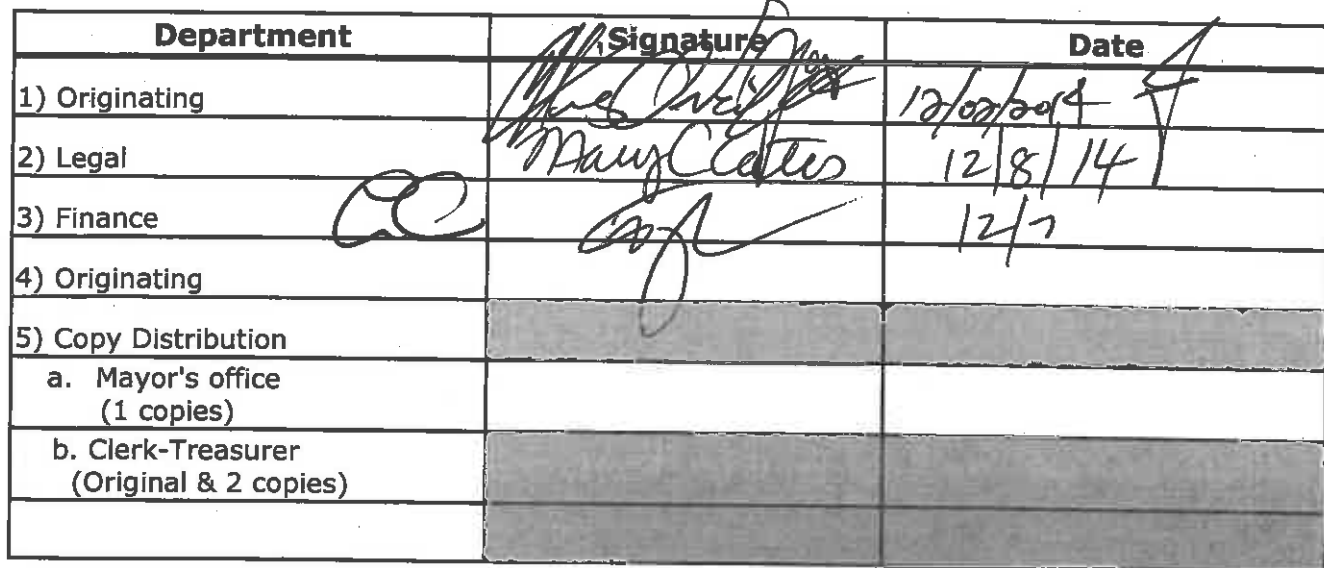 Department Signature Date
1) Originating 12/02/2014
2) Legal Mary C 12/8/14
3) Finance 12/7
4) Originating
5) Copy Distribution
a. Mayor's office
(1 copies)
b. Clerk-Treasurer
(Original & 2 copies)